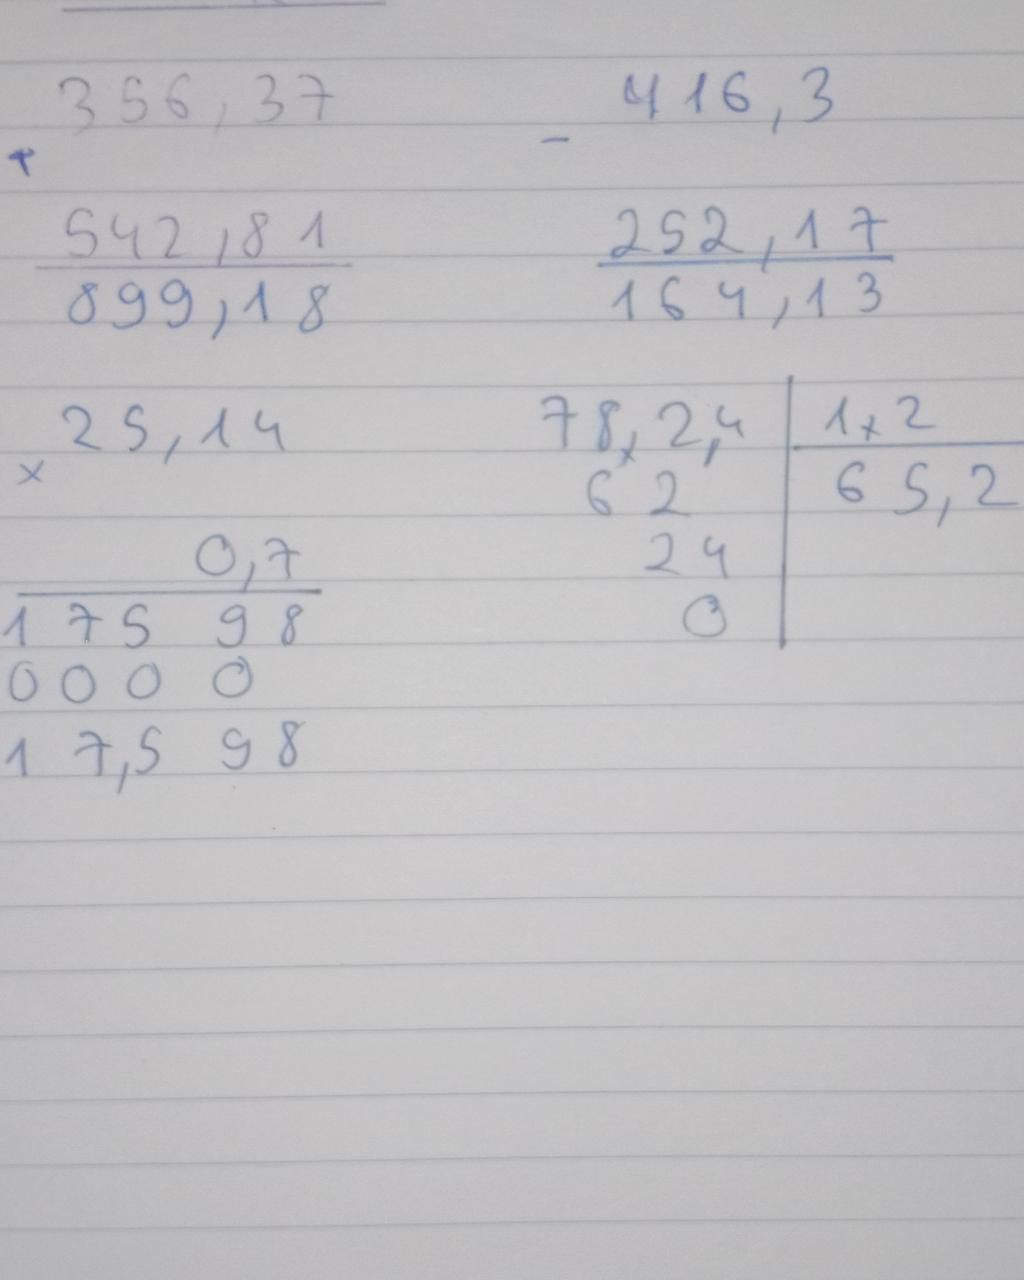 356,37
+
542,81
899,18
416,3
-
252,17
164,13
25,14
x
0,7
175 98
000 0
17,5 98
78,2,4 | 1,2
62 | 65,2
24
0